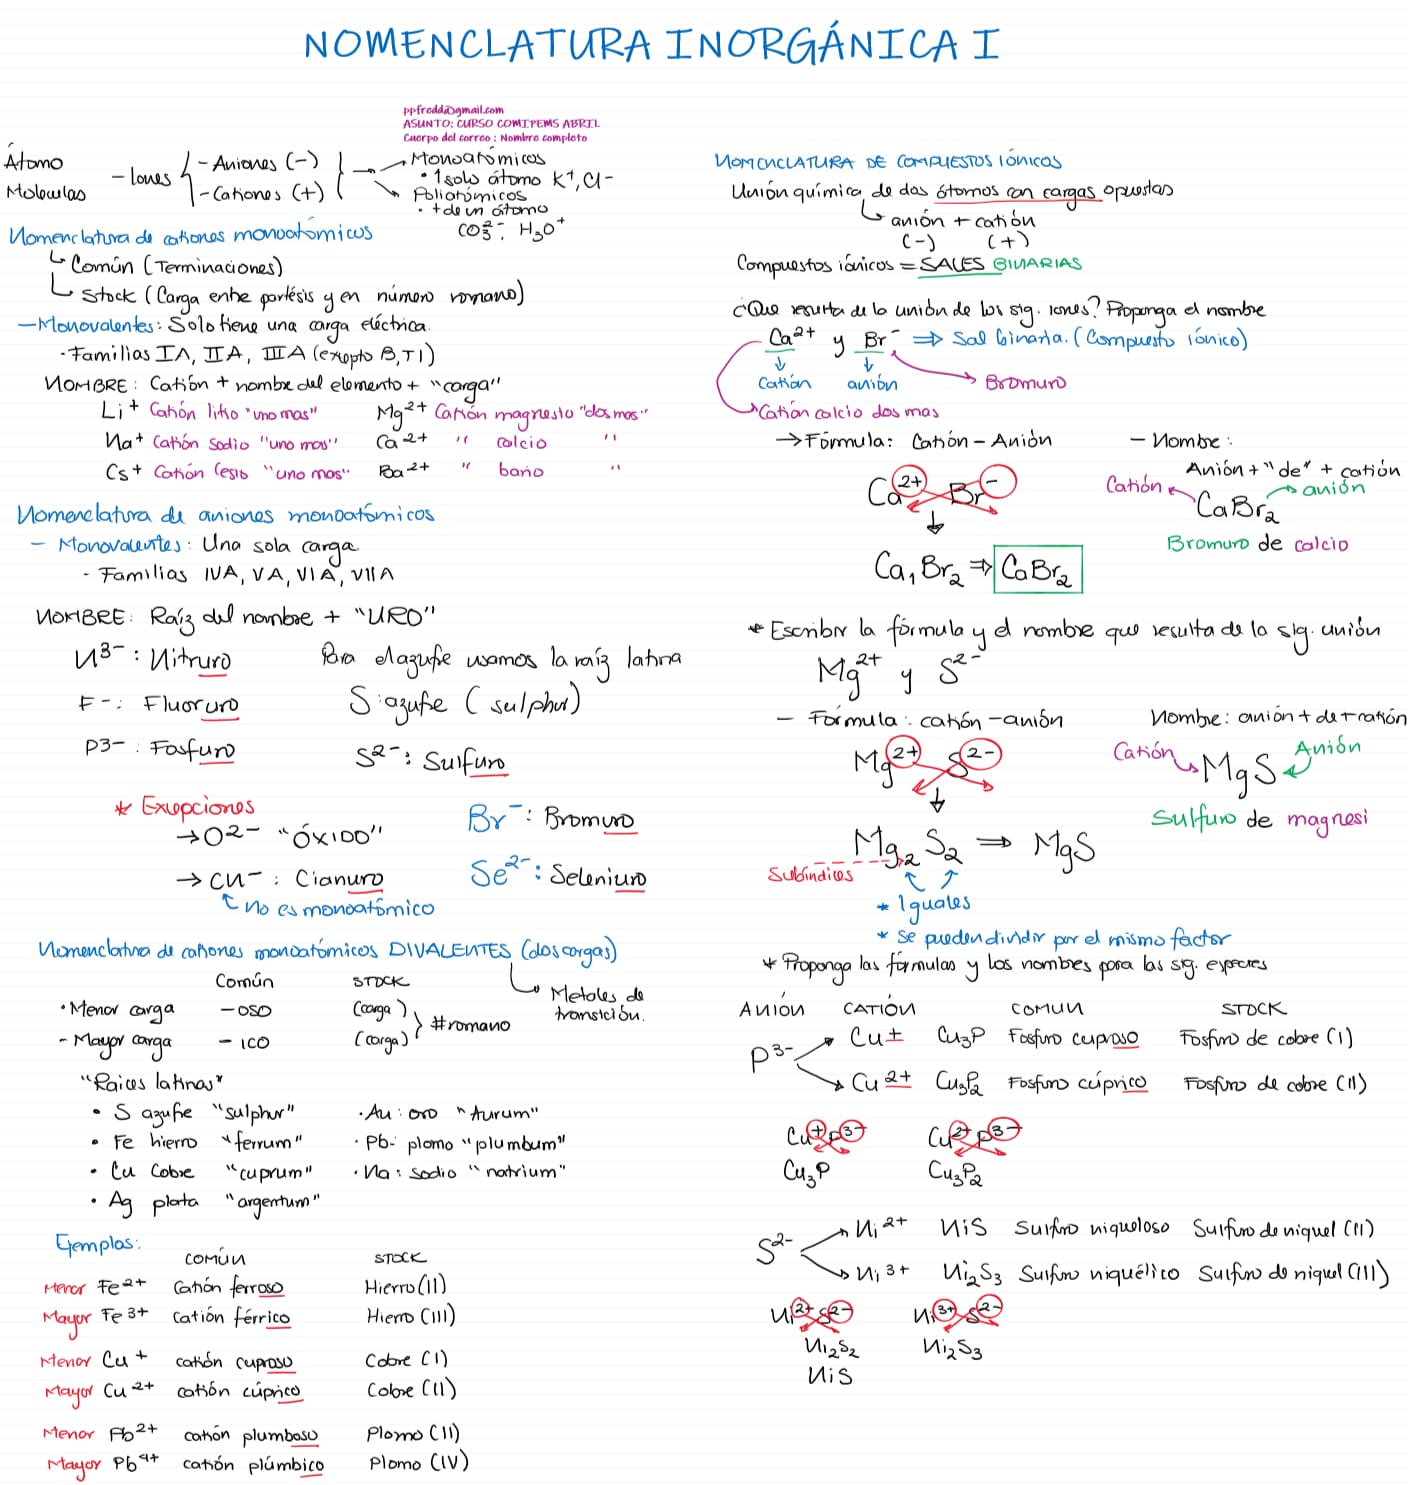 NOMENCLATURA INORGÁNICA I
ppfredd@gmail.com
ASUNTO: CURSO COMIPEMS ABRIL
Cuerpo del correo: Nombre completo
Átomo
Moléculas
- Iones
- Aniones (-)
- Cationes (+)
Monoatómicos
• 1 solo átomo K+, Cl-
Poliatómicos
• + de un átomo
CO3 2-, H3O+
Nomenclatura de cationes monoatómicos
Común (Terminaciones)
Stock (Carga entre partésis y en número romano)
- Monovalentes: Solo tiene una carga eléctrica.
· Familias IA, IIA, IIIA (exepto B, Tl)
NOMBRE: Catión + nombre del elemento + "carga"
Li+ Catión litio "uno mas" Mg2+ Catión magnesio "dos mas"
Na+ Catión sodio "uno mas" Ca2+ " calcio "
Cs+ Catión Cesio "uno mas" Ba2+ " bario "
Nomenclatura de aniones monoatómicos
- Monovalentes: Una sola carga
- Familias IVA, VA, VIA, VIIA
NOMBRE: Raíz del nombre + "URO"
N3-: Nitruro
F-: Fluoruro
P3-: Fosfuro
Para el azufre usamos la raíz latina
S: azufre (sulphur)
S2-: Sulfuro
* Exepciones
→ O2- "ÓXIDO"
→ CN-: Cianuro
No es monoatómico
Br-: Bromuro
Se2-: Seleniuro
Nomenclatura de cationes monoatómicos DIVALENTES (dos cargas)
Metales de transición.
Común STOCK
· Menor carga - OSO (carga)
- Mayor carga - ICO (carga)
#romano
"Raices latinas"
• S azufre "sulphur" · Au: oro "Aurum"
• Fe hierro "ferrum" · Pb- plomo "plumbum"
• Cu Cobre "cuprum" · Na: sodio "natrium"
• Ag plata "argentum"
Ejemplos:
COMÚN STOCK
Menor Fe2+ Catión ferroso Hierro (II)
Mayor Fe3+ Catión férrico Hierro (III)
Menor Cu+ catión cuproso Cobre (I)
Mayor Cu2+ catión cúprico Cobre (II)
Menor Pb2+ catión plumboso Plomo (II)
Mayor Pb4+ catión plúmbico Plomo (IV)
NOMENCLATURA DE COMPUESTOS IÓNICOS
Unión química de dos átomos con cargas opuestas
anión + catión
(-) (+)
Compuestos iónicos = SALES BINARIAS
¿Que resulta de la unión de los sig. iones? Proponga el nombre
Ca2+ y Br- ⇒ Sal binaria. (Compuesto iónico)
Catión anión Bromuro
Catión calcio dos mas
→ Fórmula: Catión - Anión
Ca2+ Br-
Ca1Br2 ⇒ CaBr2
- Nombre:
Anión + "de" + catión
Catión CaBr2 anión
Bromuro de calcio
* Escribir la fórmula y el nombre que resulta de la sig. unión
Mg2+ y S2-
- Fórmula: catión - anión
Mg2+ S2-
Mg2 S2 ⇒ MgS
Subíndices
* Iguales
* Se pueden dividir por el mismo factor
Nombre: anión + de + catión
Catión MgS Anión
Sulfuro de magnesi
* Proponga las fórmulas y los nombres para las sig. especies
ANIÓN CATIÓN COMUN STOCK
P3-
Cu+ Cu3P Fosfuro cuproso Fosfuro de cobre (I)
Cu2+ Cu3P2 Fosfuro cúprico Fosfuro de cobre (II)
Cu+ P3- Cu2+ P3-
Cu3P Cu3P2
S2-
Ni2+ NiS Sulfuro niqueloso Sulfuro de niquel (II)
Ni3+ Ni2S3 Sulfuro niquélico Sulfuro de niquel (III)
Ni2+ S2- Ni3+ S2-
Ni2S2 Ni2S3
NiS